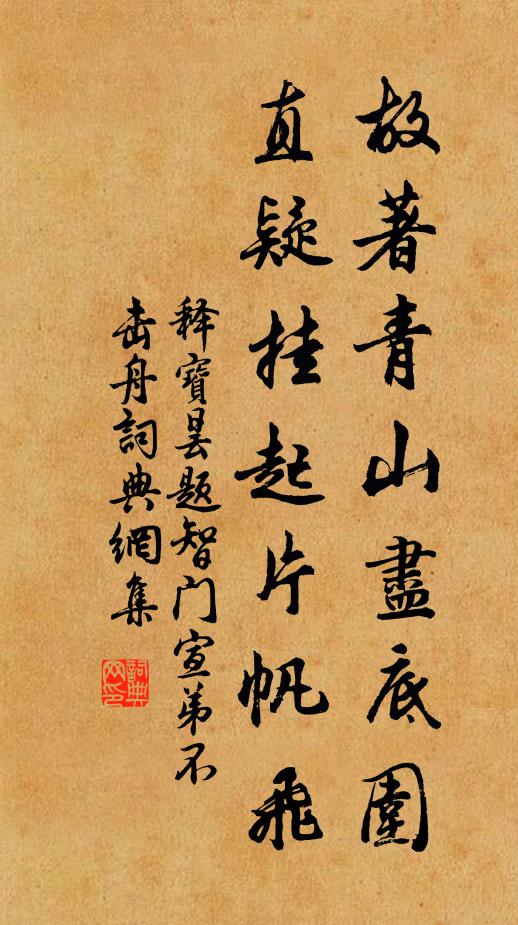 故著青山盡底圍
直疑挂起片帆飛
释寶曇题智门宣弟不
击舟詞典網集
詞典
网印